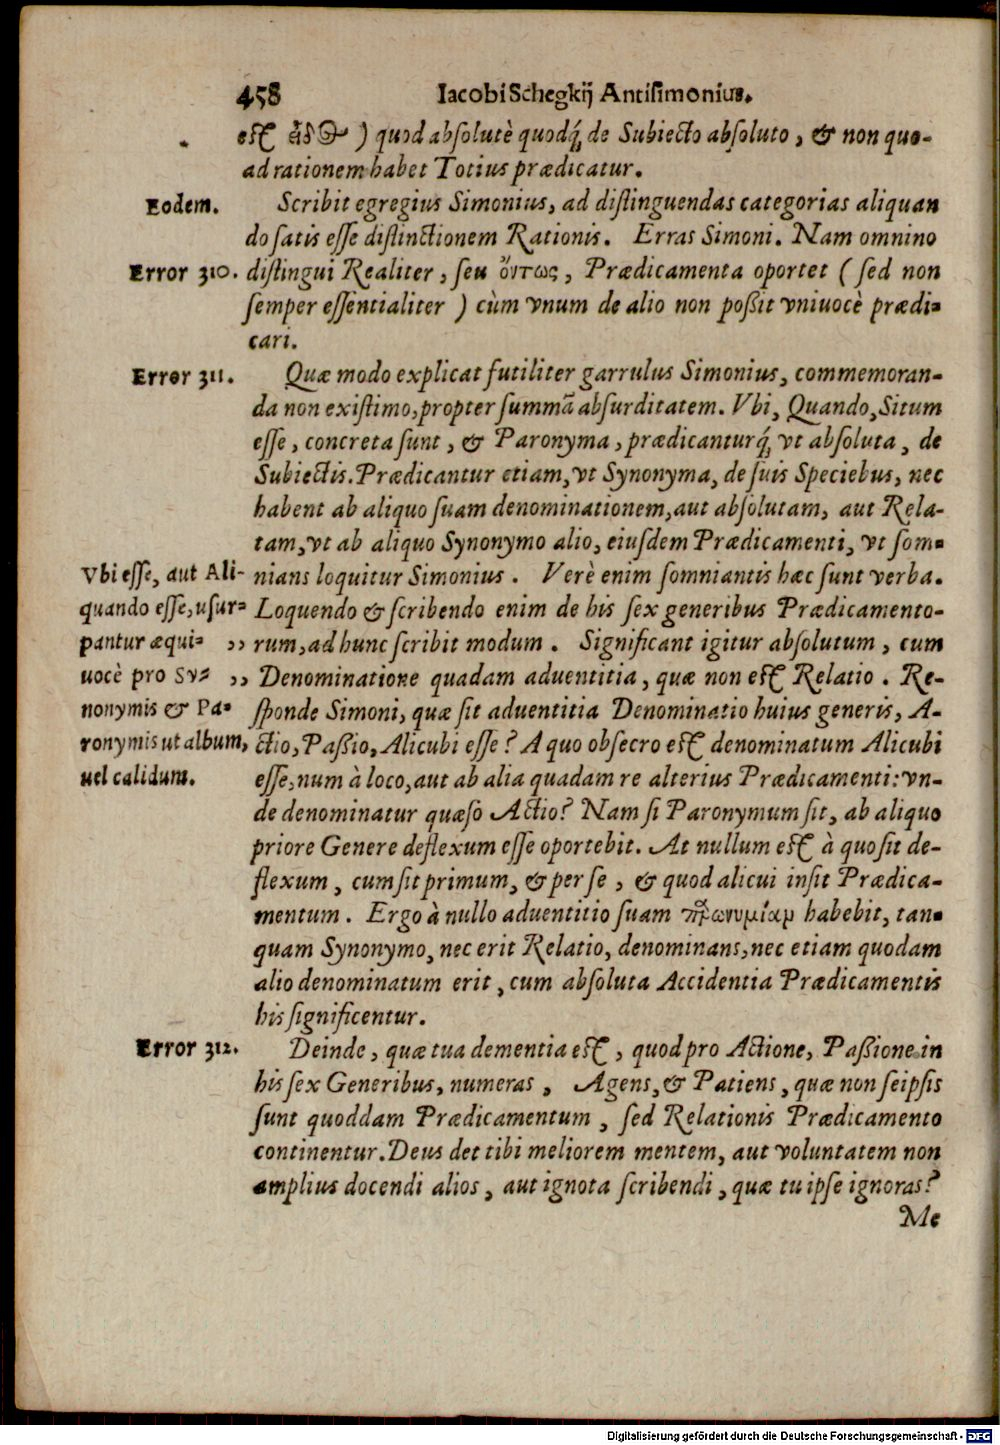 458 Iacobi Schegkij Antisimonius.
est εἶδος) quod absolutè quodq́; de Subiecto absoluto, & non quo-
ad rationem habet Totius prædicatur.
Eodem.
Scribit egregius Simonius, ad distinguendas categorias aliquan
do satis esse distinctionem Rationis. Erras Simoni. Nam omnino
Error 310.
distingui Realiter, seu ὄντως, Prædicamenta oportet (sed non
semper essentialiter) cùm vnum de alio non poßit vniuocè prædi-
cari.
Error 311.
Quæ modo explicat futiliter garrulus Simonius, commemoran-
da non existimo, propter summā absurditatem. Vbi, Quando, Situm
esse, concreta sunt, & Paronyma, prædicanturq́; vt absoluta, de
Subiectis. Prædicantur etiam, vt Synonyma, de suis Speciebus, nec
habent ab aliquo suam denominationem, aut absolutam, aut Rela-
tam, vt ab aliquo Synonymo alio, eiusdem Prædicamenti, vt som-
nians loquitur Simonius. Verè enim somniantis hæc sunt verba.
Loquendo & scribendo enim de his sex generibus Prædicamento-
,, rum, ad hunc scribit modum. Significant igitur absolutum, cum
,, Denominatione quadam aduentitia, quæ non est Relatio. Re-
sponde Simoni, quæ sit aduentitia Denominatio huius generis, A-
ctio, Paßio, Alicubi esse? A quo obsecro est denominatum Alicubi
esse, num à loco, aut ab alia quadam re alterius Prædicamenti: vn-
de denominatur quæso Actio? Nam si Paronymum sit, ab aliquo
priore Genere deflexum esse oportebit. At nullum est à quo sit de-
flexum, cum sit primum, & per se, & quod alicui insit Prædica-
mentum. Ergo à nullo aduentitio suam παρωνυμίαν habebit, tan-
quam Synonymo, nec erit Relatio, denominans, nec etiam quodam
alio denominatum erit, cum absoluta Accidentia Prædicamentis
his significentur.
Vbi esse, aut Ali-
quando esse, usur-
pantur æqui-
uocè pro Sy-
nonymis & Pa-
ronymis ut album,
uel calidum.
Error 312.
Deinde, quæ tua dementia est, quod pro Actione, Paßione in
his sex Generibus, numeras, Agens, & Patiens, quæ non seipsis
sunt quoddam Prædicamentum, sed Relationis Prædicamento
continentur. Deus det tibi meliorem mentem, aut voluntatem non
amplius docendi alios, aut ignota scribendi, quæ tu ipse ignoras?
Me
Digitalisierung gefördert durch die Deutsche Forschungsgemeinschaft - DFG